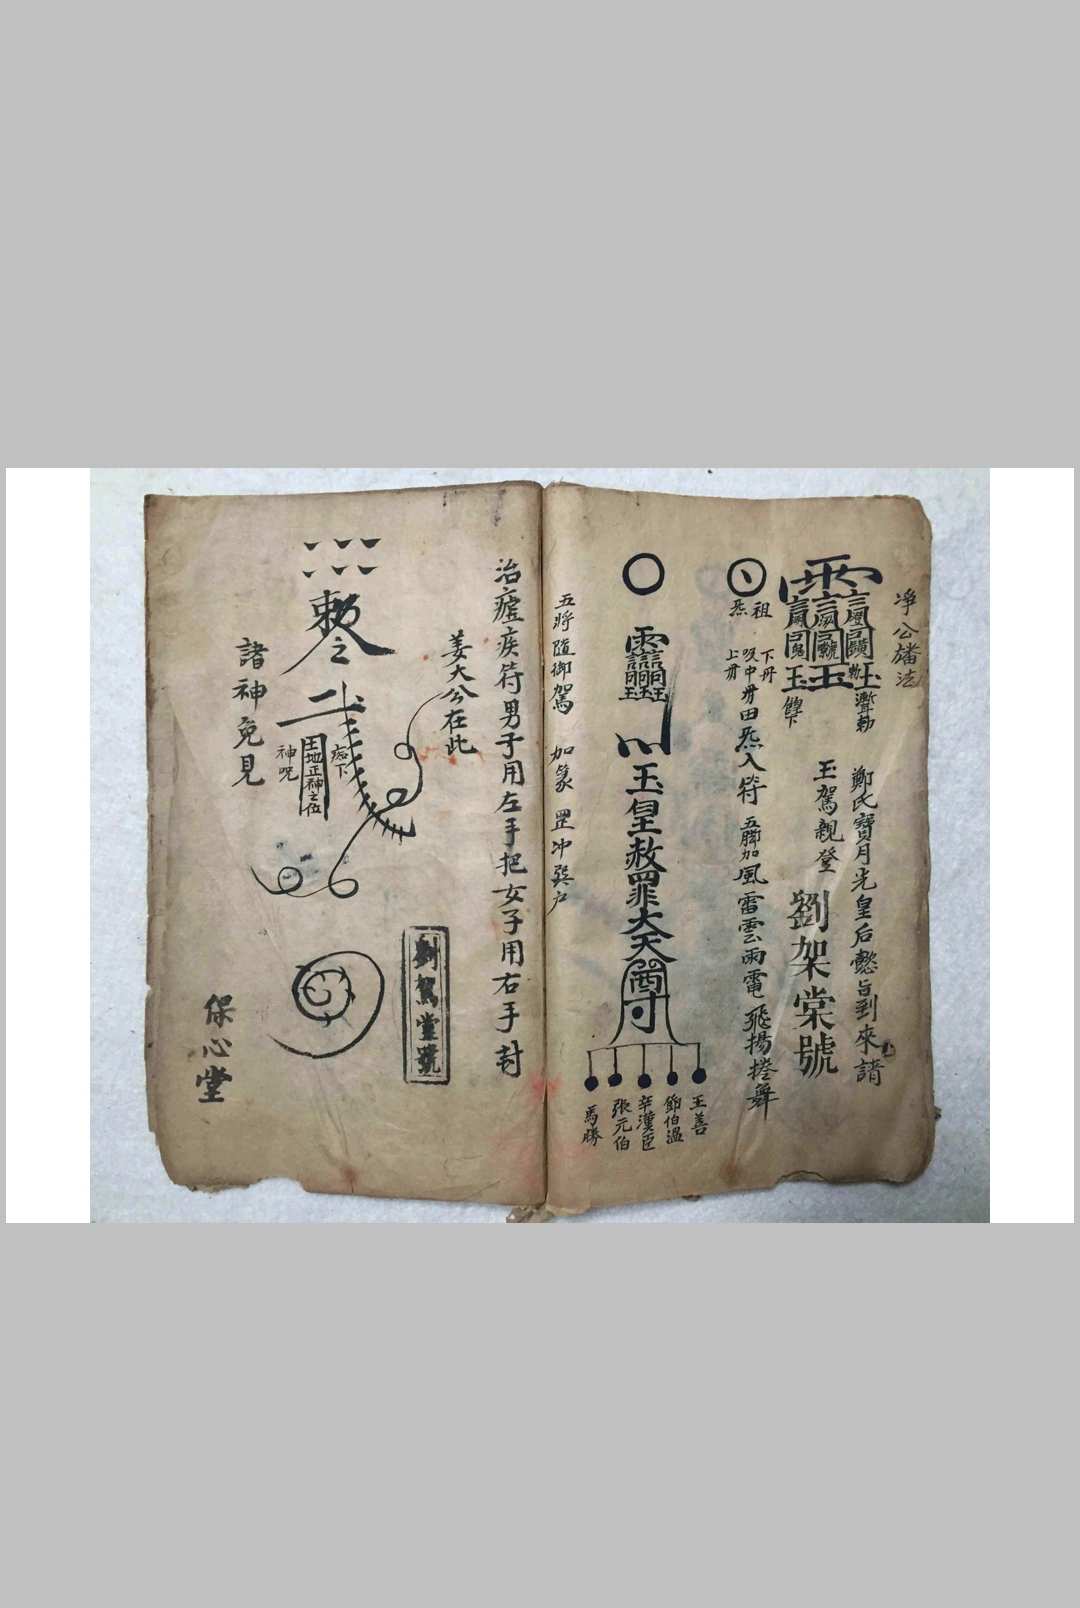 淨公旛法
鄭氏寶月光皇后懿旨到來請
玉駕親登 劉架棠號
祖炁
下丹
吸中丹田炁入符 五臟加風雷雲雨電飛揚捲舞
上丹
玉皇赦罪大天尊
王善
鄧伯溫
辛漢臣
張元伯
馬勝
五將隨御駕 加篆 罡冲巽户
治瘧疾符男子用左手把女子用右手封
姜太公在此
劉駕堂號
敕令
土地正神之位
神咒
諸神免見
保心堂